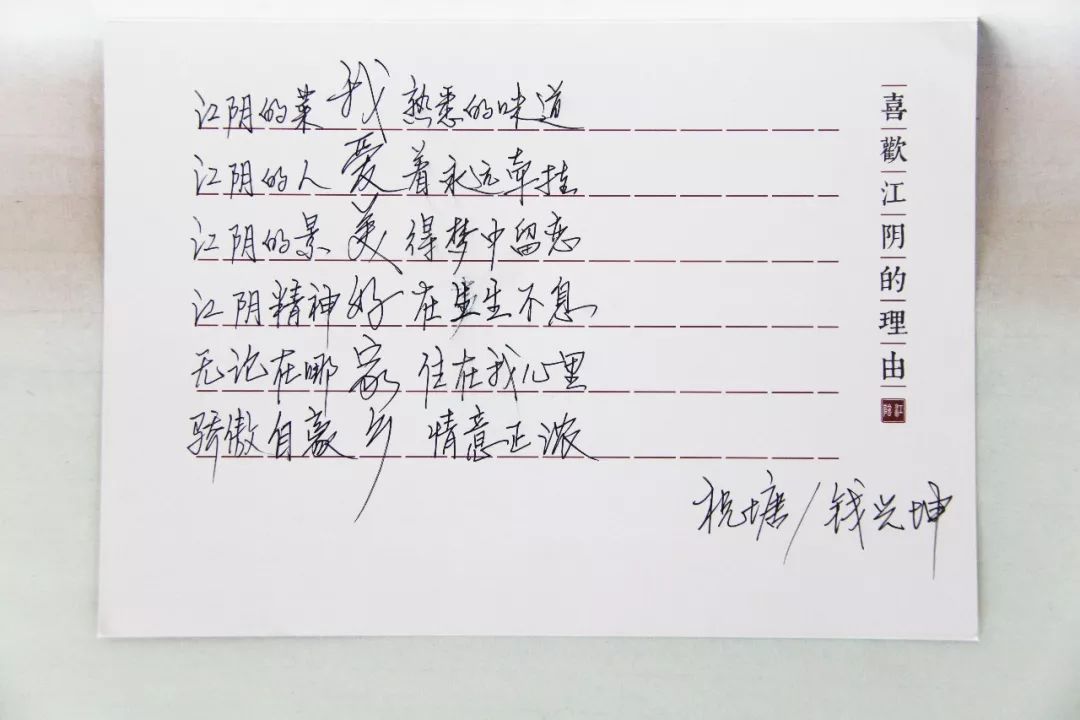 江阴的菜我熟悉的味道
江阴的人爱着永远牵挂
江阴的景美得梦中留恋
江阴精神好在生生不息
无论在哪家住在我心里
骄傲自豪乡情意正浓
祝塘/钱兴坤
喜歡江阴的理由
江陰